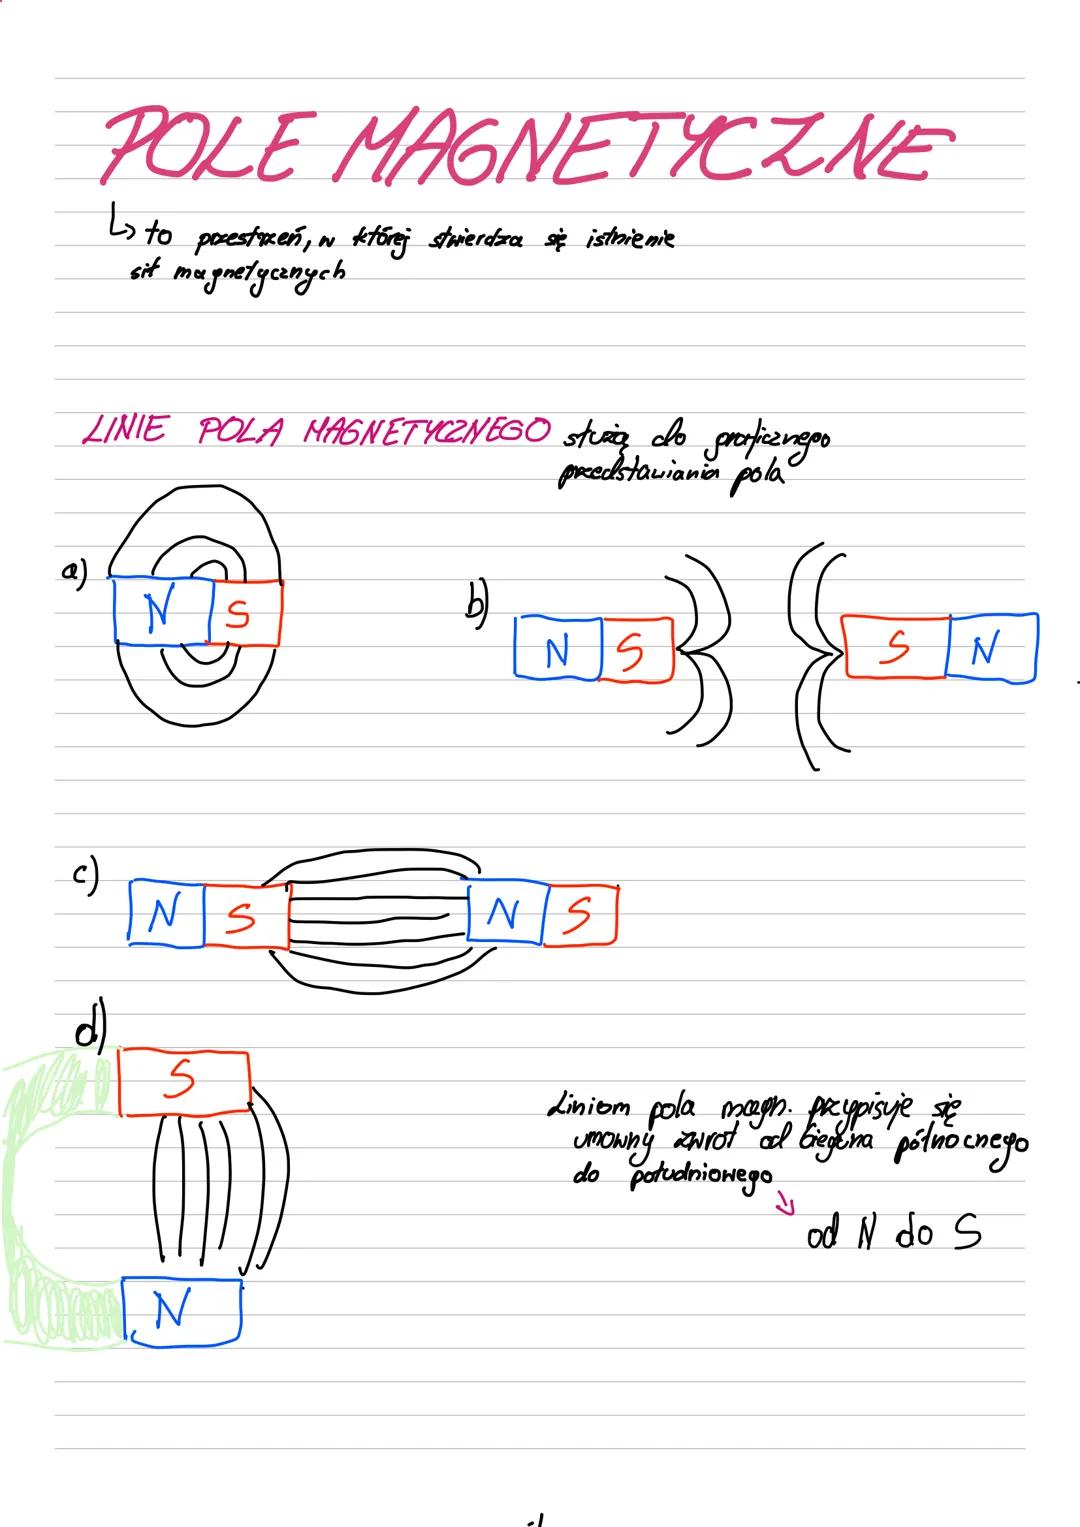 POLE MAGNETYCZNE
↳ to przestrzeń, w której stwierdza się istnienie
sił magnetycznych
LINIE POLA MAGNETYCZNEGO służą do graficznego
przedstawiania pola
a)
N S
b)
N S S N
c)
N S N S
d)
S
N
Liniom pola magn. przypisuje się
umowny zwrot od bieguna północnego
do południowego
od N do S